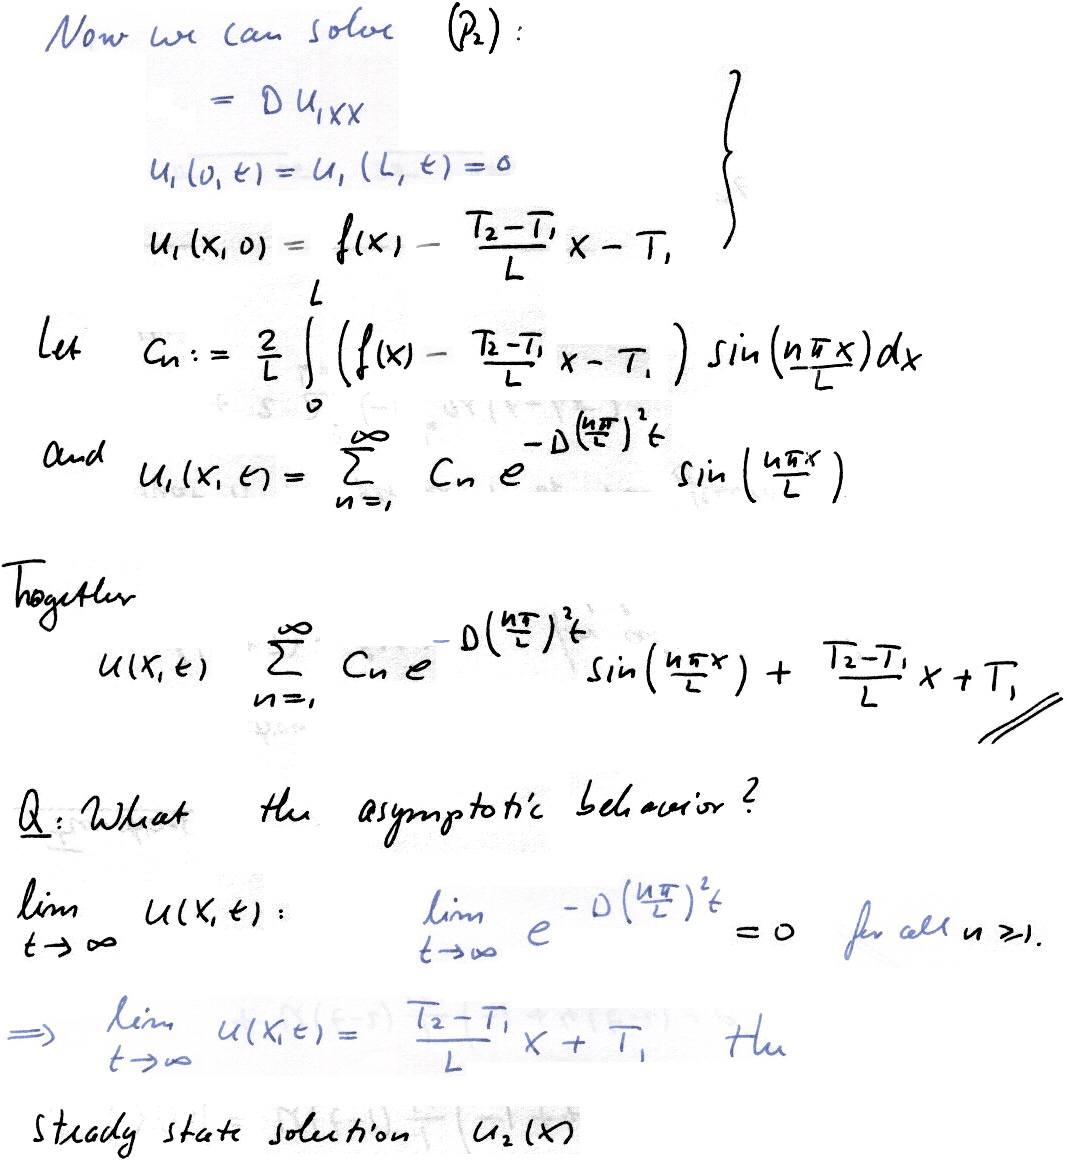 Now we can solve (P₂):
= D u₁xx
u₁(0, t) = u₁(L, t) = 0
u₁(x, 0) = f(x) - (T₂-T₁)/L x - T₁
Let Cn := 2/L ∫₀ᴸ (f(x) - (T₂-T₁)/L x - T₁) sin(nπx/L) dx
and u₁(x, t) = ∑_{n=1}^∞ Cn e^{-D(nπ/L)²t} sin(nπx/L)
Together
u(x, t) ∑_{n=1}^∞ Cn e^{-D(nπ/L)²t} sin(nπx/L) + (T₂-T₁)/L x + T₁
Q: What the asymptotic behavior?
lim_{t→∞} u(x, t): lim_{t→∞} e^{-D(nπ/L)²t} = 0 for all n ≥ 1.
⇒ lim_{t→∞} u(x, t) = (T₂-T₁)/L x + T₁ the
steady state solution u₂(x)